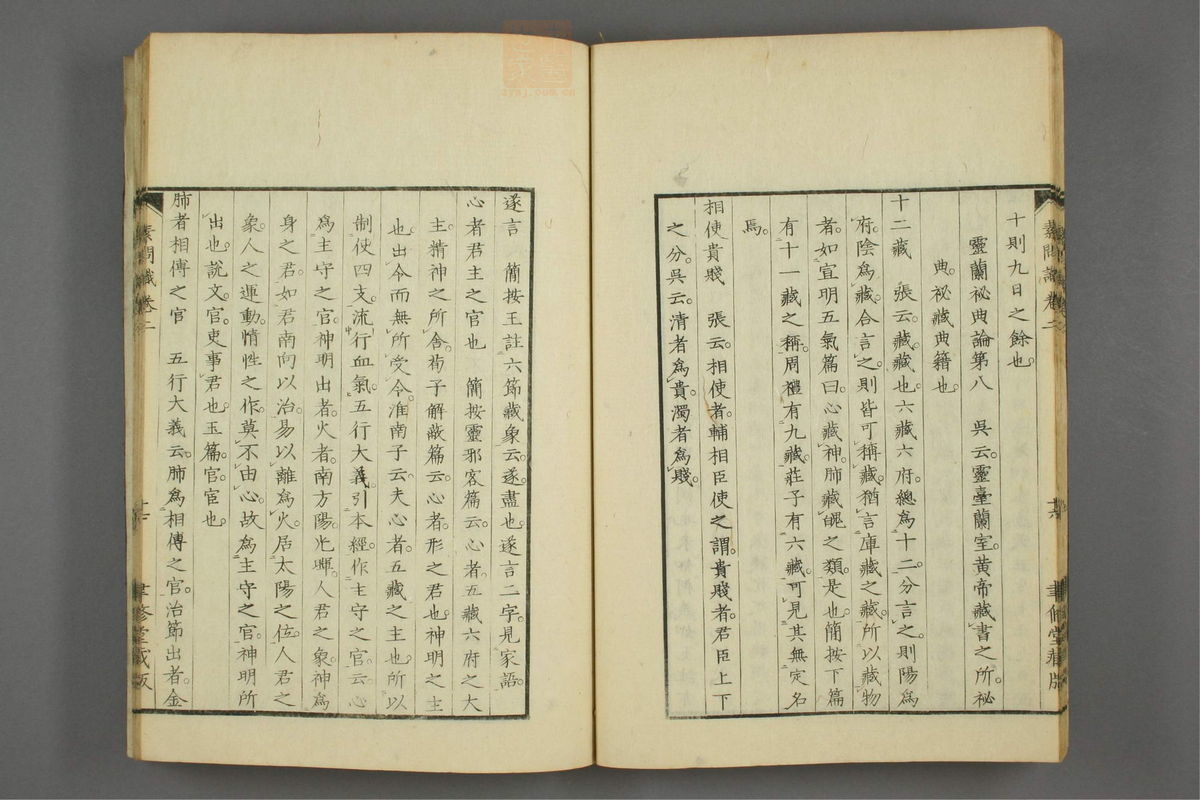 素問識卷二
十則九日之餘也
靈蘭祕典論第八　吳云靈臺蘭室黃帝藏書之所祕
典祕藏典籍也
十二藏　張云藏藏也六藏六府總為十二分言之則陽為
府陰為藏合言之則皆可稱藏猶言庫藏之藏所以藏物
者如宣明五氣篇曰心藏神肺藏魄之類是也簡按下篇
有十一藏之稱周禮有九藏莊子有六藏可見其無定名
焉
相使貴賤　張云相使者輔相臣使之謂貴賤者君臣上下
之分吳云清者為貴濁者為賤
遂言　簡按王註六節藏象云遂盡也遂言二字見家語
心者君主之官也　簡按靈邪客篇云心者五藏六府之大
主精神之所舍荀子解蔽篇云心者形之君也神明之主
也出令而無所受令淮南子云夫心者五藏之主也所以
制使四支流行血氣五行大義引本經作主守之官云心
為主守之官神明出者火者南方陽光暉人君之象神為
身之君如君南向以治易以離為火居太陽之位人君之
象人之運動情性之作莫不由心故為主守之官神明所
出也說文官吏事君也玉篇官宦也
肺者相傅之官　五行大義云肺為相傅之官治節出者金
素問識卷二
聿修堂藏版